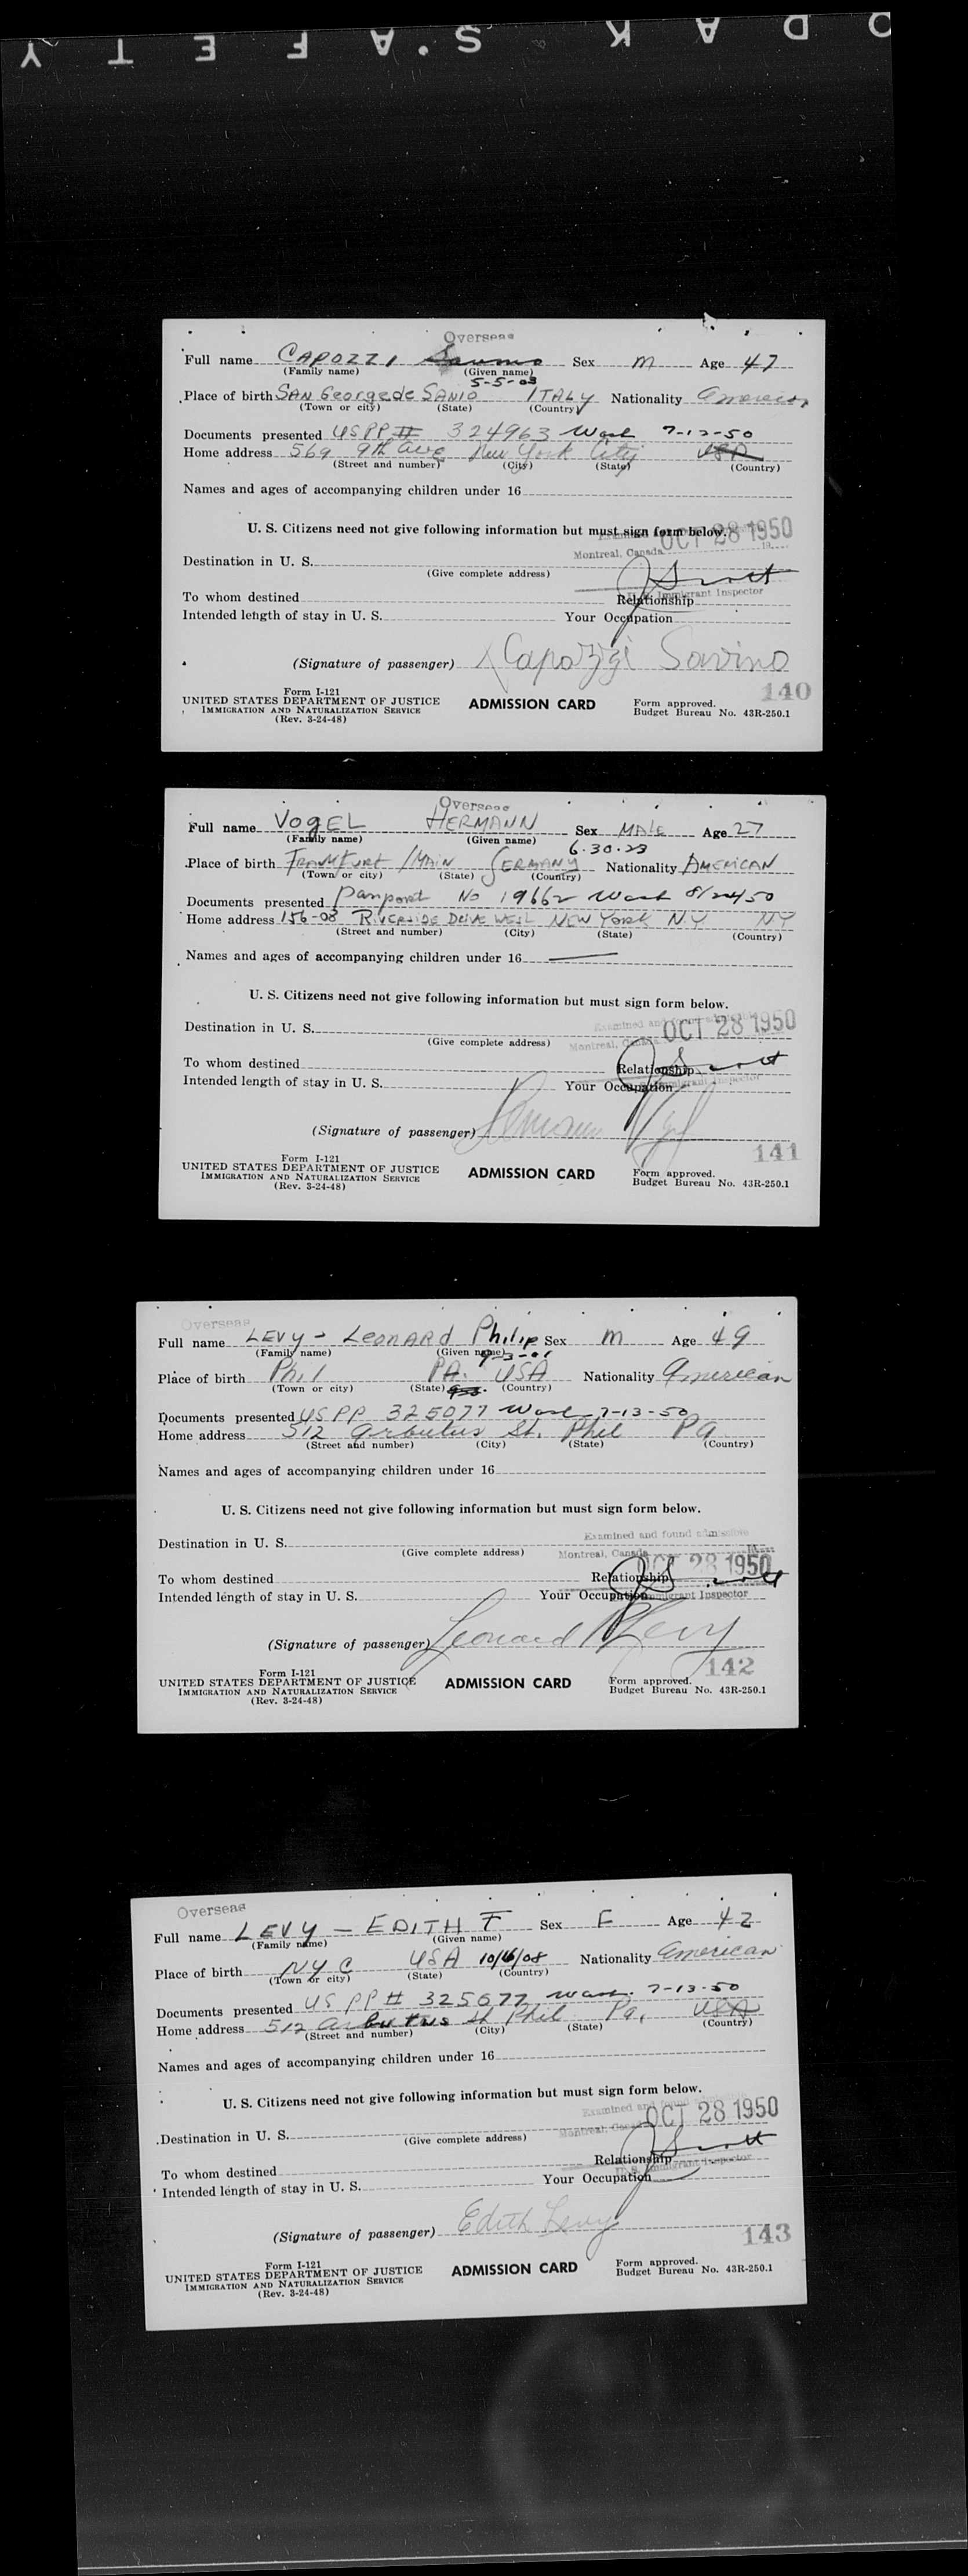 KODAK S.A F E T Y
Overseas
Full name CAPOZZI Savino Sex M Age 47
(Family name) (Given name)
5-5-03
Place of birth SAN George de SANIO ITALY Nationality American
(Town or city) (State) (Country)
Documents presented USPP # 324963 Wash 7-12-50
Home address 569 9th Ave New York City USA
(Street and number) (City) (State) (Country)
Names and ages of accompanying children under 16
U. S. Citizens need not give following information but must sign form below.
OCT 28 1950
Montreal, Canada
Destination in U. S.
(Give complete address)
U.S. Immigrant Inspector
To whom destined Relationship
Intended length of stay in U. S. Your Occupation
(Signature of passenger) Capozzi Savino
140
Form I-121
UNITED STATES DEPARTMENT OF JUSTICE
IMMIGRATION AND NATURALIZATION SERVICE
(Rev. 3-24-48)
ADMISSION CARD
Form approved.
Budget Bureau No. 43R-250.1
Overseas
Full name VOGEL HERMANN Sex MALE Age 27
(Family name) (Given name)
6-30-23
Place of birth FRANKFURT /MAIN GERMANY Nationality AMERICAN
(Town or city) (State) (Country)
Documents presented Passport No 19662 Wash 8/24/50
Home address 156-08 RIVERSIDE DRIVE WEST NEW YORK NY NY
(Street and number) (City) (State) (Country)
Names and ages of accompanying children under 16
U. S. Citizens need not give following information but must sign form below.
Examined and found admissible
OCT 28 1950
Montreal, Canada
Destination in U. S.
(Give complete address)
To whom destined Relationship
Intended length of stay in U. S. Your Occupation
U.S. Immigrant Inspector
(Signature of passenger) Hermann Vogel
141
Form I-121
UNITED STATES DEPARTMENT OF JUSTICE
IMMIGRATION AND NATURALIZATION SERVICE
(Rev. 3-24-48)
ADMISSION CARD
Form approved.
Budget Bureau No. 43R-250.1
Overseas
Full name LEVY - LEONARD Philip Sex M Age 49
(Family name) (Given name)
9-3-01
Place of birth Phil PA. USA Nationality American
(Town or city) (State) (Country)
Documents presented US PP 325077 Wash 7-13-50
Home address 512 Arbutus St. Phil Pa
(Street and number) (City) (State) (Country)
Names and ages of accompanying children under 16
U. S. Citizens need not give following information but must sign form below.
Examined and found admissible
Destination in U. S.
(Give complete address)
Montreal, Canada
OCT 28 1950
To whom destined Relationship
Intended length of stay in U. S. Your Occupation
Immigrant Inspector
(Signature of passenger) Leonard P Levy
142
Form I-121
UNITED STATES DEPARTMENT OF JUSTICE
IMMIGRATION AND NATURALIZATION SERVICE
(Rev. 3-24-48)
ADMISSION CARD
Form approved.
Budget Bureau No. 43R-250.1
Overseas
Full name LEVY - EDITH F Sex F Age 42
(Family name) (Given name)
Place of birth NYC USA 10/16/08 Nationality American
(Town or city) (State) (Country)
Documents presented US PP # 325077 Wash. 7-13-50
Home address 512 Arbutus St Phil Pa, USA
(Street and number) (City) (State) (Country)
Names and ages of accompanying children under 16
U. S. Citizens need not give following information but must sign form below.
Examined and found admissible
OCT 28 1950
Montreal, Canada
Destination in U. S.
(Give complete address)
To whom destined Relationship
U.S. Immigrant Inspector
Intended length of stay in U. S. Your Occupation
(Signature of passenger) Edith Levy
143
Form I-121
UNITED STATES DEPARTMENT OF JUSTICE
IMMIGRATION AND NATURALIZATION SERVICE
(Rev. 3-24-48)
ADMISSION CARD
Form approved.
Budget Bureau No. 43R-250.1